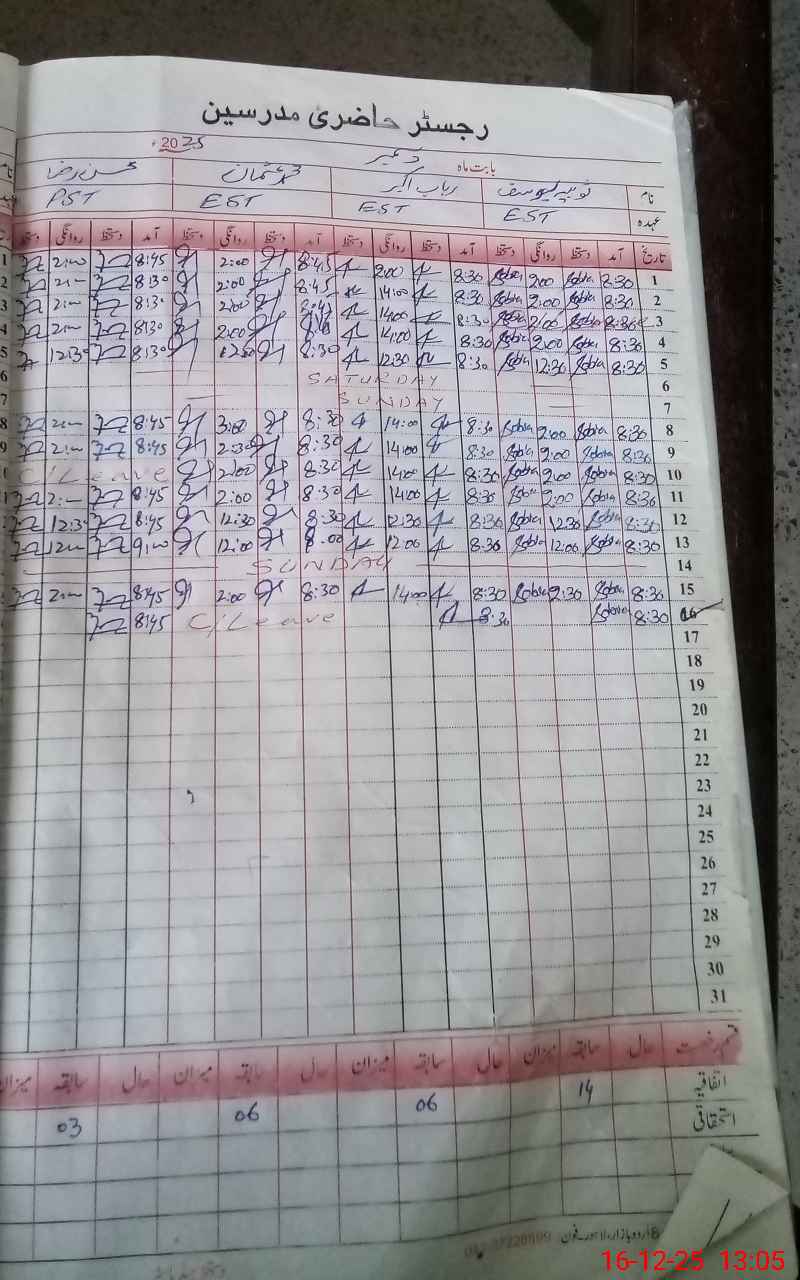 رجسٹر حاضری مدرسین
بابت ماہ دسمبر 2025ء
نام ثوبیہ یوسف رباب اکبر محمد عثمان محسن رضا
عہدہ EST EST EST PST
تاریخ آمد دستخط روانگی دستخط آمد دستخط روانگی دستخط آمد دستخط روانگی دستخط آمد دستخط روانگی دستخط
1 8:30 Sobia 2:00 Sobia 8:30 2:00 8:45 2:00 8:45 2:00
2 8:30 Sobia 2:00 Sobia 8:30 14:00 8:45 2:00 8:30 2:00
3 8:30 Sobia 2:00 Sobia 8:30 14:00 2:00 8:30 2:00
4 8:30 Sobia 2:00 Sobia 8:30 14:00 2:00 8:30 2:00
5 8:30 Sobia 12:30 Sobia 8:30 12:30 8:30 8:30 12:30
6 SATURDAY
7 SUNDAY
8 8:30 Sobia 2:00 Sobia 8:30 14:00 8:30 3:00 8:45 2:00
9 8:30 Sobia 2:00 Sobia 8:30 14:00 8:30 2:30 8:45 2:00
10 8:30 Sobia 2:00 Sobia 8:30 14:00 8:30 2:00 C/Leave
11 8:30 Sobia 2:00 Sobia 8:30 14:00 8:30 2:00 8:45 2:00
12 8:30 Sobia 12:30 Sobia 8:30 12:30 8:30 12:30 8:45 12:30
13 8:30 Sobia 12:00 Sobia 8:30 12:00 8:00 12:00 9:00 12:00
14 SUNDAY
15 8:30 Sobia 2:30 Sobia 8:30 14:00 8:30 2:00 8:45 2:00
16 8:30 Sobia 8:30 C/Leave 8:45
17
18
19
20
21
22
23
24
25
26
27
28
29
30
31
قسم رخصت حال سابقہ میزان حال سابقہ میزان حال سابقہ میزان حال سابقہ میزان
اتفاقیہ 14 06 06 03
استحقاقی
اردو بازار، لاہور۔ فون
16-12-25 13:05